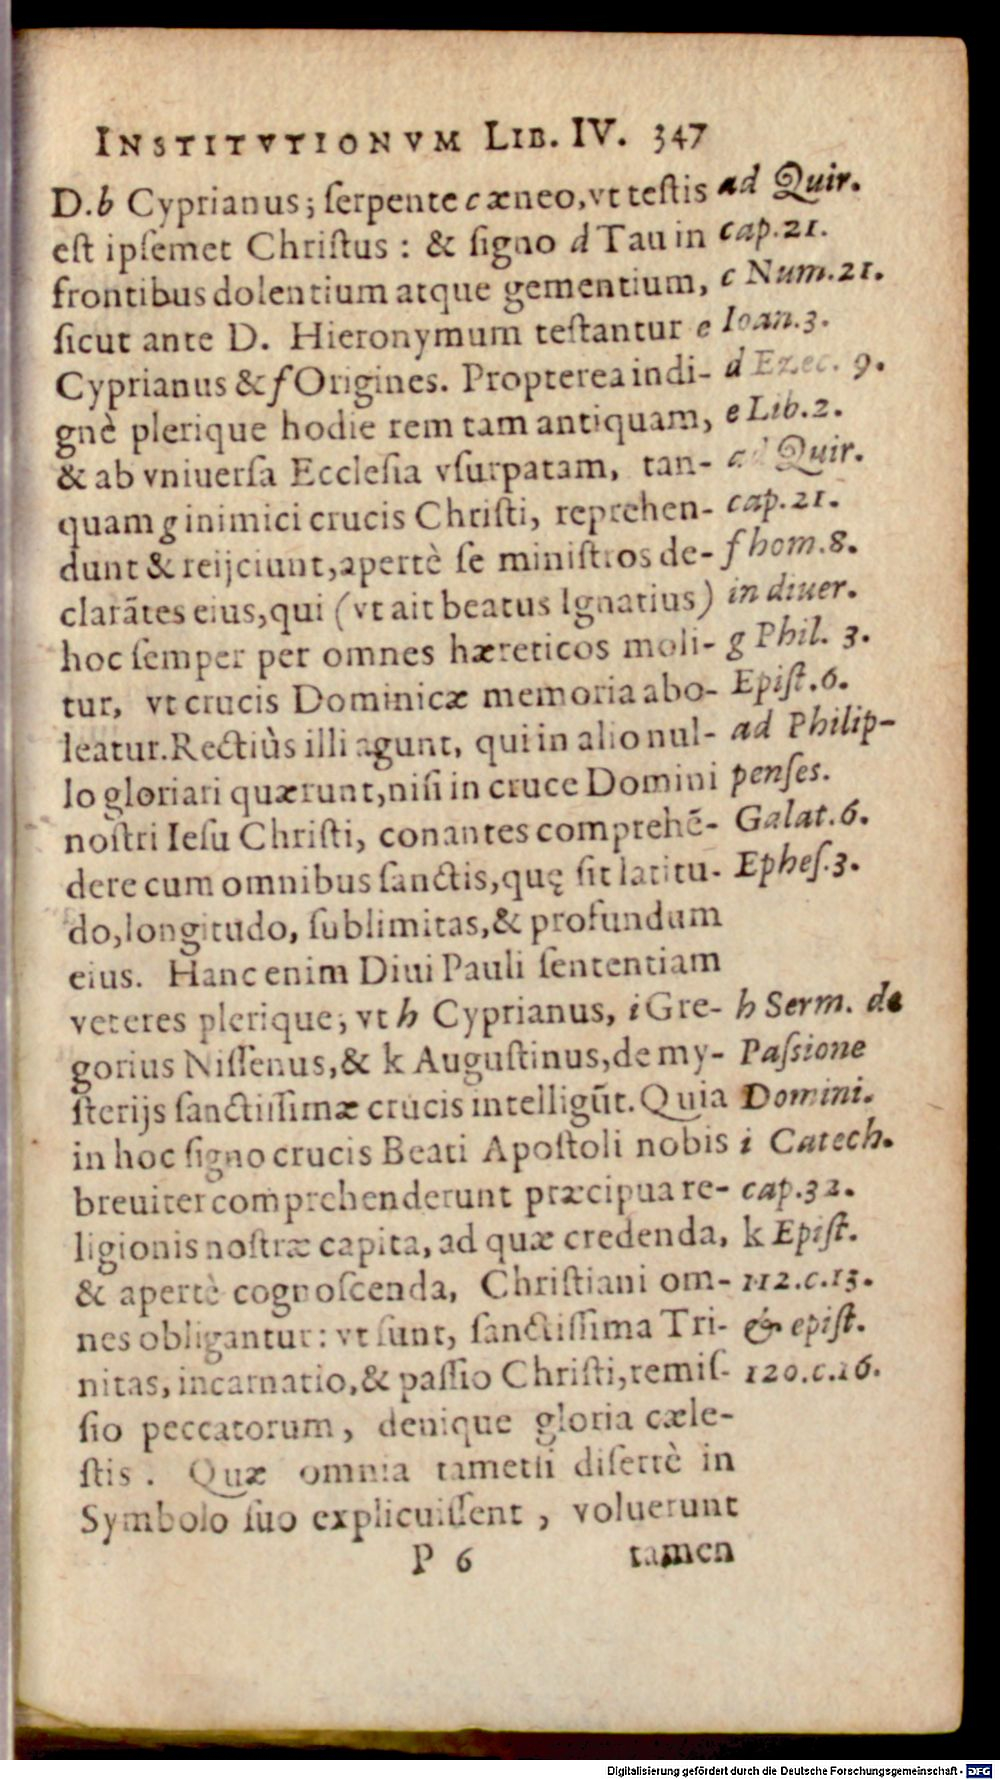 INSTITVTIONVM LIB. IV. 347
D. b Cyprianus; ſerpente c æneo, vt teſtis
eſt ipſemet Chriſtus: & ſigno d Tau in
frontibus dolentium atque gementium,
ſicut ante D. Hieronymum teſtantur e
Cyprianus & f Origines. Propterea indi-
gnè plerique hodie rem tam antiquam,
& ab vniuerſa Eccleſia vſurpatam, tan-
quam g inimici crucis Chriſti, reprehen-
dunt & reijciunt, apertè ſe miniſtros de-
clarãtes eius, qui (vt ait beatus Ignatius)
hoc ſemper per omnes hæreticos moli-
tur, vt crucis Dominicæ memoria abo-
leatur. Rectiùs illi agunt, qui in alio nul-
lo gloriari quærunt, niſi in cruce Domini
noſtri Ieſu Chriſti, conantes comprehẽ-
dere cum omnibus ſanctis, quę ſit latitu-
do, longitudo, ſublimitas, & profundum
eius. Hanc enim Diui Pauli ſententiam
veteres plerique, vt h Cyprianus, i Gre-
gorius Niſſenus, & k Auguſtinus, de my-
ſterijs ſanctiſſimæ crucis intelligũt. Quia
in hoc ſigno crucis Beati Apoſtoli nobis
breuiter comprehenderunt præcipua re-
ligionis noſtræ capita, ad quæ credenda,
& apertè cognoſcenda, Chriſtiani om-
nes obligantur: vt ſunt, ſanctiſſima Tri-
nitas, incarnatio, & paſſio Chriſti, remiſ-
ſio peccatorum, denique gloria cæle-
ſtis. Quæ omnia tametſi diſertè in
Symbolo ſuo explicuiſſent, voluerunt
P 6 tamen
ad Quir.
cap. 21.
c Num. 21.
Ioan. 3.
d Ezec. 9.
e Lib. 2.
ad Quir.
cap. 21.
f hom. 8.
in diuer.
g Phil. 3.
Epiſt. 6.
ad Philip-
penſes.
Galat. 6.
Epheſ. 3.
h Serm. de
Paſsione
Domini.
i Catech.
cap. 32.
k Epiſt.
112. c. 13.
& epiſt.
120. c. 16.
Digitalisierung gefördert durch die Deutsche Forschungsgemeinschaft - DFG